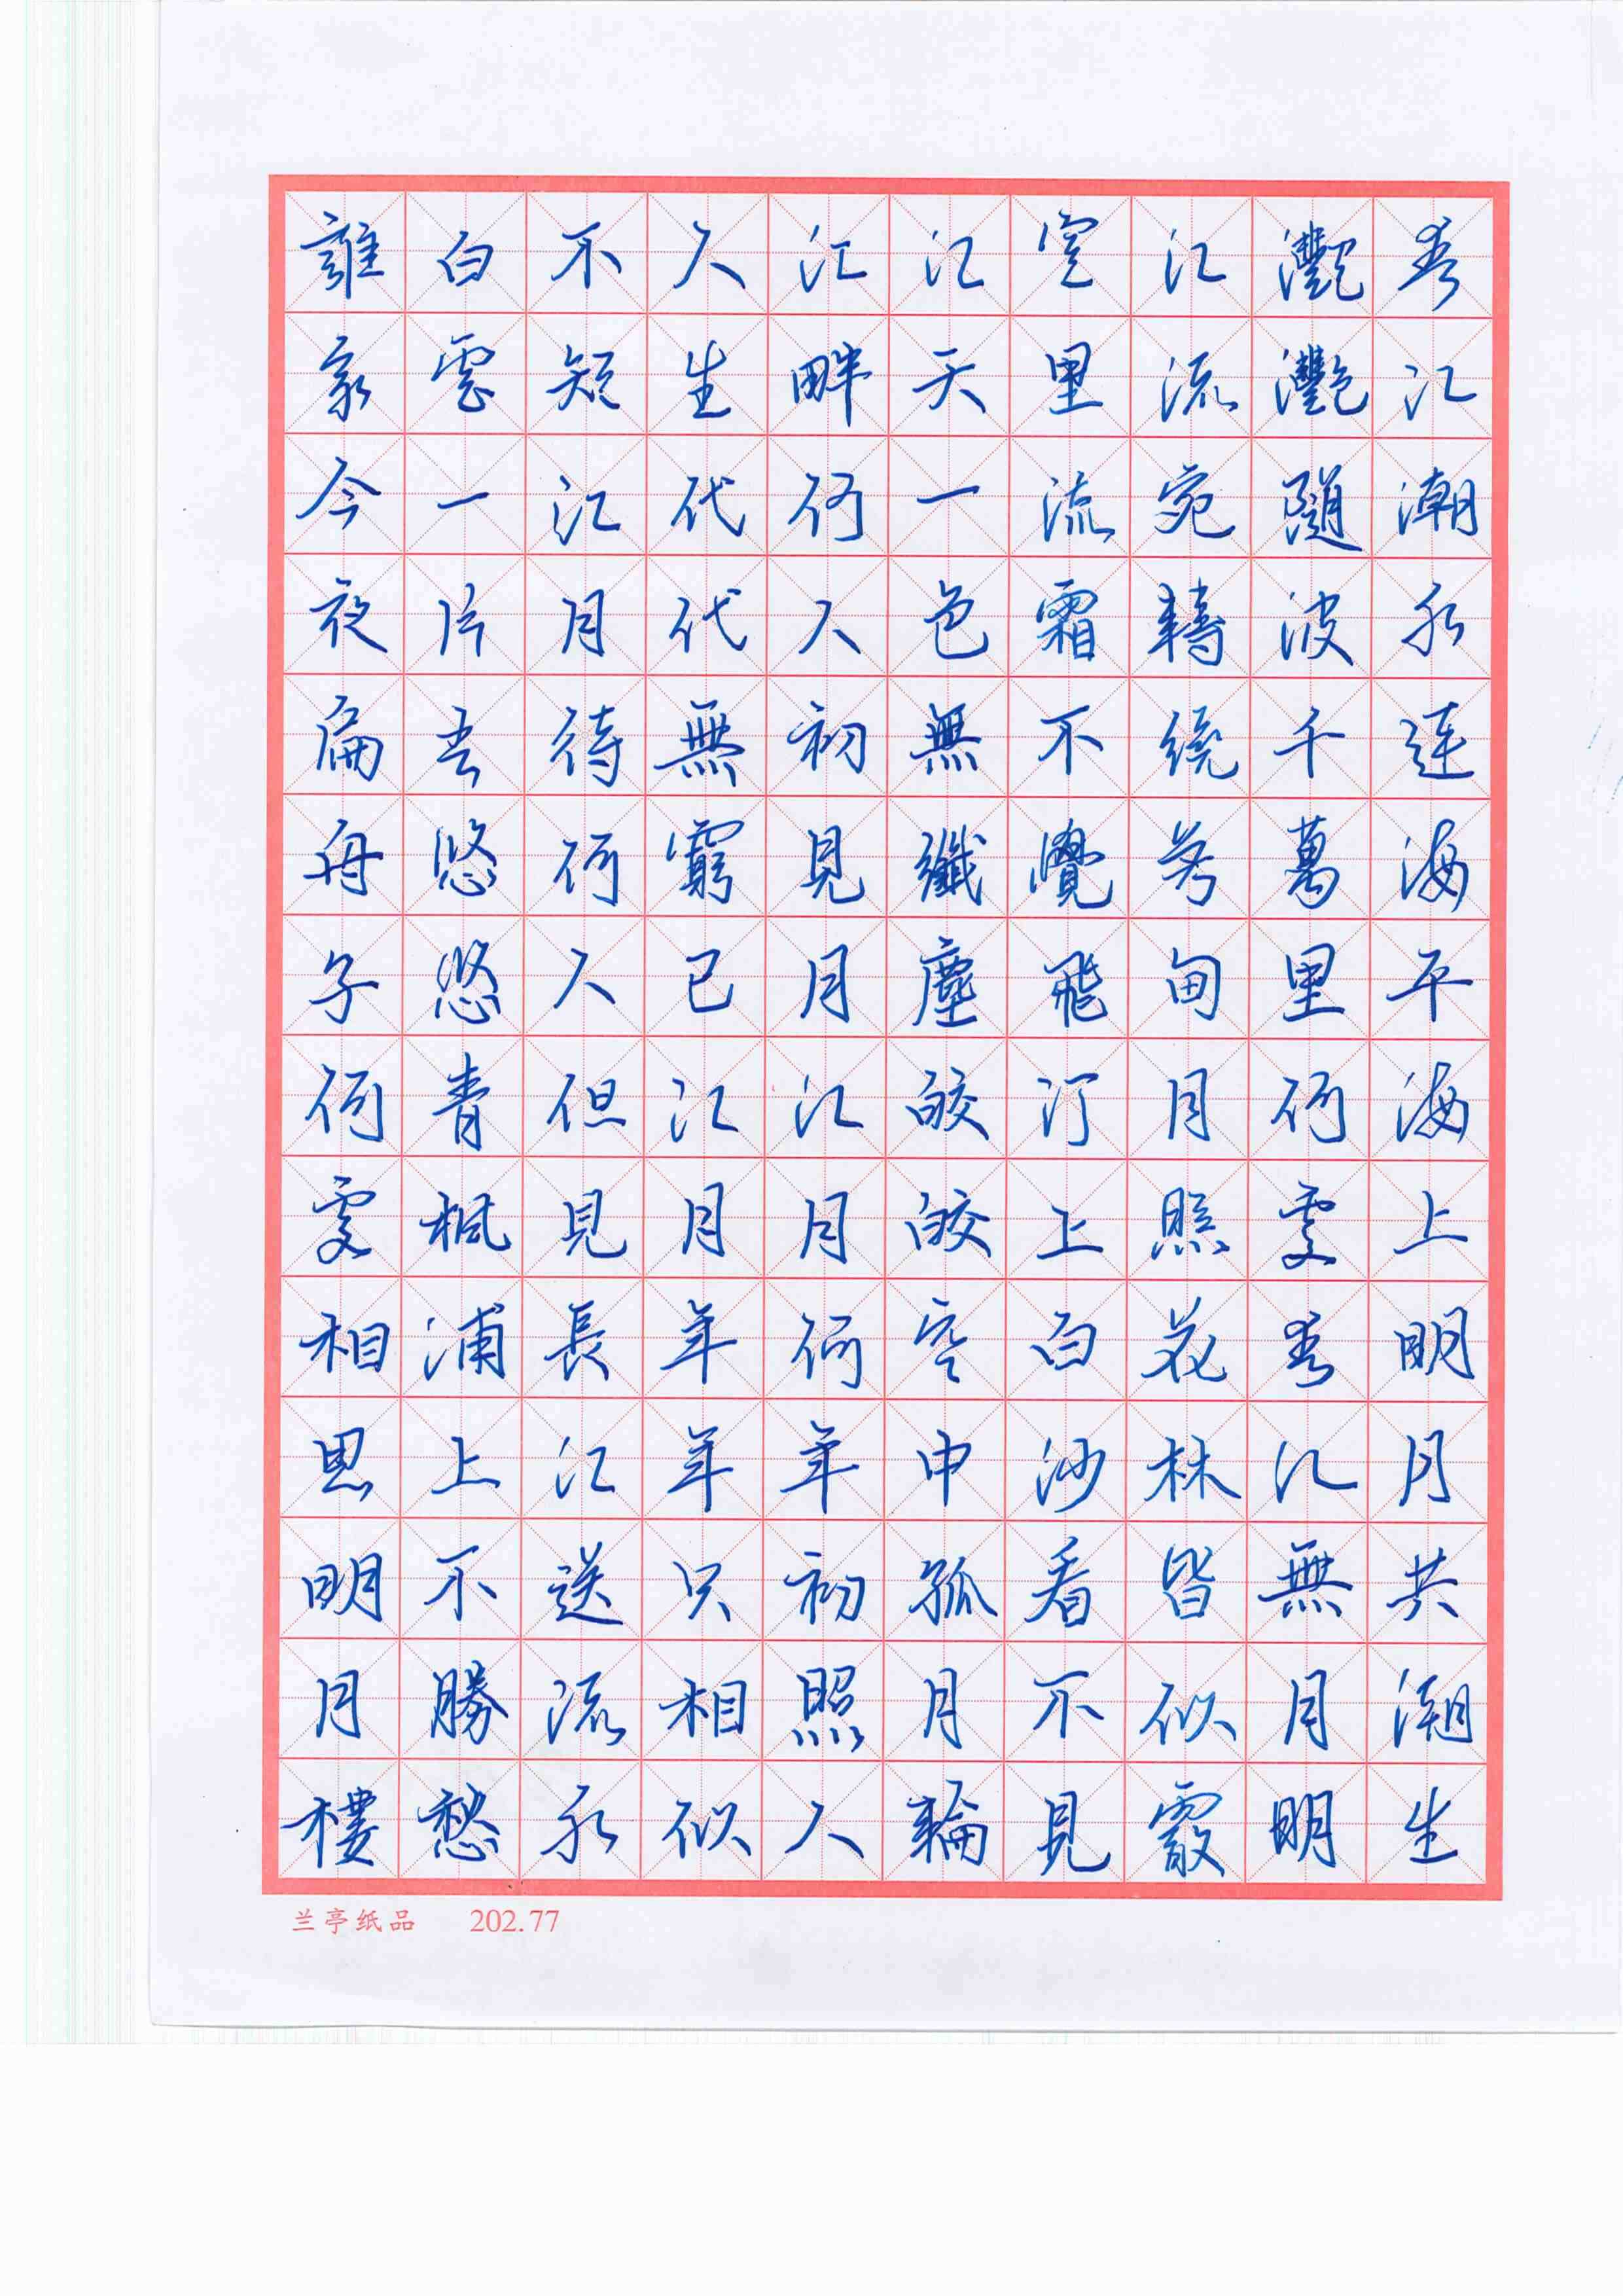 春江潮水連海平海上明月共潮生
灩灩隨波千萬里何處春江無月明
江流宛轉繞芳甸月照花林皆似霰
空里流霜不覺飛汀上白沙看不見
江天一色無纖塵皎皎空中孤月輪
江畔何人初見月江月何年初照人
人生代代無窮已江月年年只相似
不知江月待何人但見長江送流水
白雲一片去悠悠青楓浦上不勝愁
誰家今夜扁舟子何處相思明月樓
兰亭纸品 202.77